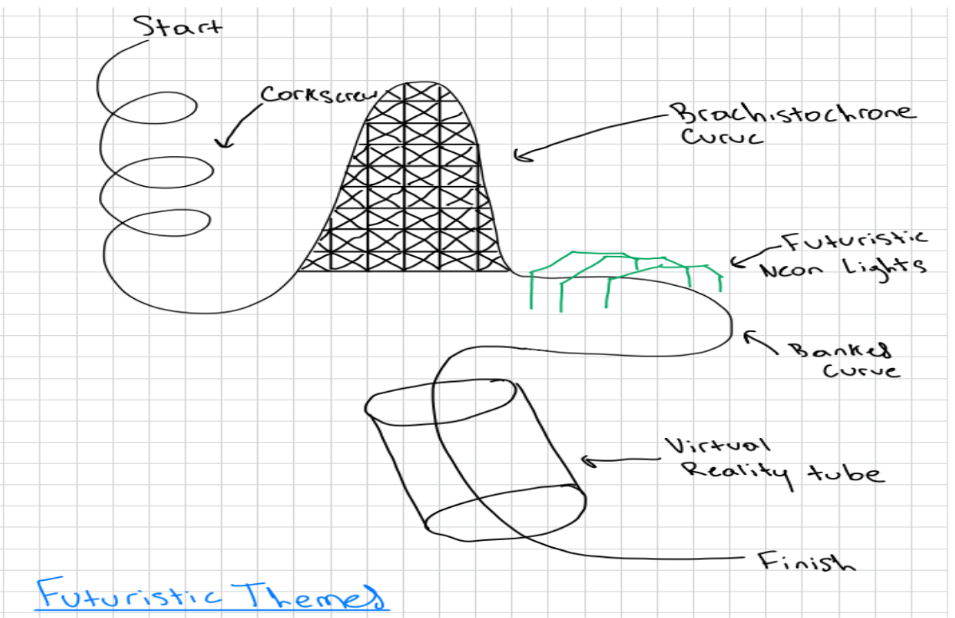 Start
Corkscrew
Brachistochrone
Curve
Futuristic
Neon Lights
Banked
Curve
Virtual
Reality tube
Finish
Futuristic Themes